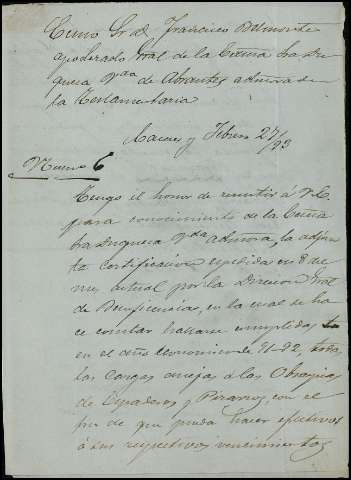 Excmo Sr D. Francisco Belmonte
apoderado Gral de la Excma Sra Du
quesa Vda de Abrantes administra de
la Testamentaria
Caceres y Febrero 27/93
Numero 6
Tengo el honor de remitir á V. E.
para conocimiento de la Excma
Sra Duquesa Vda admora, la adjun
ta certificacion expedida en 8 de
mes actual por la Direccion Gral
de Beneficencia, en la cual se ha
ce constar hallarse cumplidas
en el año economico de 91-92, todas
las cargas anejas á las Obras pias
de Ovando y Pizarro, con el
fin de que pueda hacer efectivos
á sus respectivos vencimientos